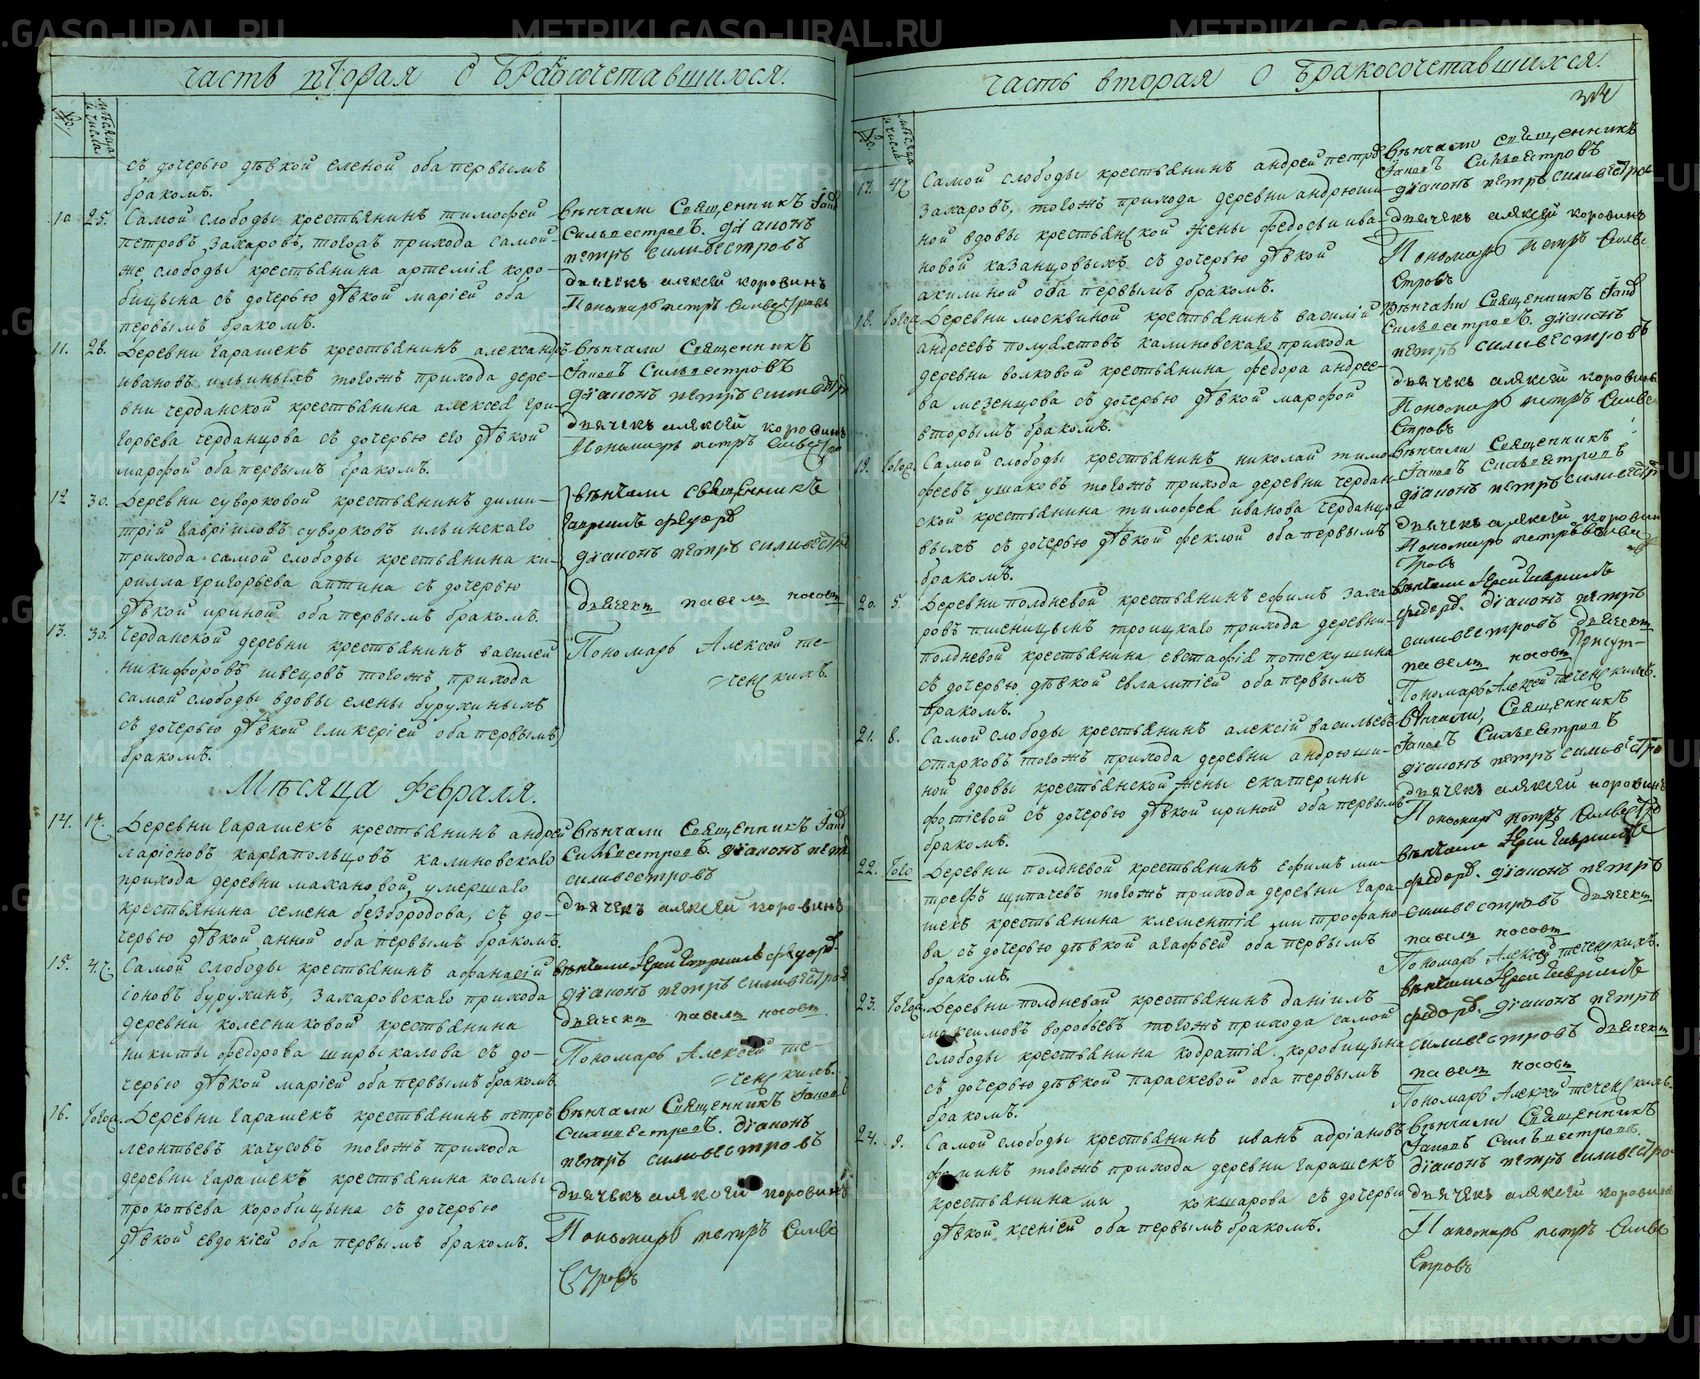 часть вторая о бракосочетавшихся.
№
мѣсяца и числа
съ дочерью дѣвкой еленой оба первымъ
бракомъ.
10
25.
Самой слободы крестьянинъ тимофей
петровъ захаровъ, тогожъ прихода самой
же слободы крестьянина артемія коро-
бицына съ дочерью дѣвкой маріей оба
первымъ бракомъ.
вѣнчали Священникъ
Сильвестровъ. діаконъ
петръ силивестровъ
дьячекъ алексѣй коровинъ
Пономарь петръ Сильвестровъ
11.
28.
Деревни гарашекъ крестьянинъ александръ
ивановъ ильиныхъ тогожъ прихода дере-
вни черданской крестьянина алексея гри-
горьева черданцова съ дочерью его дѣвкой
марфой оба первымъ бракомъ.
вѣнчали Священникъ
Сильвестровъ
діаконъ петръ силивестр
дьячекъ алексѣй коровинъ
Пономарь петръ Сильвестро
12
30.
Деревни суворковой крестьянинъ дими-
трій гавріиловъ суворковъ ильинскаго
прихода самой слободы крестьянина ки-
рилла григорьева аптина съ дочерью
дѣвкой ириной оба первымъ бракомъ.
вѣнчали священникъ
Гавріилъ
діаконъ петръ силивестро
дьячекъ павелъ носовъ
13.
30.
Черданской деревни крестьянинъ василей
никифоровъ швецовъ тогожъ прихода
самой слободы вдовы елены бурухиныхъ
съ дочерью дѣвкой гликеріей оба первымъ
бракомъ.
Пономарь Алексей
Мѣсяца Февраля.
14.
17.
Деревни гарашекъ крестьянинъ андрей
ларіоновъ каргапольцовъ калиновскаго
прихода деревни махановой, умершаго
крестьянина семена безбородова, съ до-
черью дѣвкой анной оба первымъ бракомъ.
вѣнчали Священникъ
Сильвестровъ. діаконъ петр
силивестровъ
дьячекъ алексѣй коровинъ
15.
Самой слободы крестьянинъ афанасій
іоновъ бурухинъ, захаровскаго прихода
деревни колесниковой крестьянина
никиты федорова ширыкалова съ до-
черью дѣвкой маріей оба первымъ бракомъ.
вѣнчали Іерей Гавріилъ
діаконъ петръ силивестров
дьячекъ павелъ носовъ.
Пономарь Алексей
16.
Тогож.
Деревни гарашекъ крестьянинъ петръ
леонтьевъ качусовъ тогожъ прихода
деревни гарашекъ крестьянина космы
прокопьева коробицына съ дочерью
дѣвкой евдокіей оба первымъ бракомъ.
вѣнчали Священникъ
Силивестровъ. діаконъ
петръ силивестровъ
дьячекъ алексѣй коровинъ
Пономарь петръ Сильве
стровъ
часть вторая о бракосочетавшихся.
№
мѣсяца и числа
17.
Самой слободы крестьянинъ андрей петро
захаровъ, тогожъ прихода деревни андрюши-
ной вдовы крестьянской жены федосьи ива-
новой казанцовыхъ съ дочерью дѣвкой
акилиной оба первымъ бракомъ.
Вѣнчали священникъ
Сильвестровъ
діаконъ петръ силивестров
дьячекъ алексѣй коровинъ
Пономарь петръ Сильве
стровъ
18.
Тогож
Деревни москвиной крестьянинъ василій
андреевъ полуяхтовъ калиновскаго прихода
деревни волковой крестьянина федора андрее-
ва мезенцова съ дочерью дѣвкой марфой
вторымъ бракомъ.
Вѣнчали Священникъ
Сильвестровъ. діаконъ
петръ силивестровъ
дьячекъ алексѣй коровинъ
Пономарь петръ Сильве
стровъ
19.
Тогож.
Самой слободы крестьянинъ николай тимо
феевъ ушаковъ тогожъ прихода деревни чердан
ской крестьянина тимофея иванова черданцо
выхъ съ дочерью дѣвкой феклой оба первымъ
бракомъ.
вѣнчали Священникъ
Сильвестровъ
діаконъ петръ силивестр
дьячекъ алексѣй коровин
Пономарь петръ Сильвес
тровъ
20.
5.
Деревни полдневой крестьянинъ ефимъ заха-
ровъ пшеницынъ троицкаго прихода деревни
полдневой крестьянина евстафія потекушина
съ дочерью дѣвкой евлампіей оба первымъ
бракомъ.
вѣнчали Іерей Гавріилъ
діаконъ петръ
силивестровъ дьячекъ
павелъ носовъ
Пономарь Алексей
21.
8.
Самой слободы крестьянинъ алексій васильевъ
старковъ тогожъ прихода деревни андрюши-
ной вдовы крестьянской жены екатерины
фотіевой съ дочерью дѣвкой ириной оба первымъ
бракомъ.
Вѣнчали, Священникъ
Сильвестровъ
діаконъ петръ силивестро
дьячекъ алексѣй коровинъ
Пономарь петръ Сильвестро
22.
Того
Деревни полдневой крестьянинъ ефимъ ми-
треевъ щипачевъ тогожъ прихода деревни гара-
шекъ крестьянина клементія митрофано-
ва, съ дочерью дѣвкой агафьей оба первымъ
бракомъ.
вѣнчали Іерей Гавріилъ
діаконъ петръ
силивестровъ дьячекъ
павелъ носовъ
Пономарь Алексей
23.
Тогож.
Деревни полдневой крестьянинъ даніилъ
максимовъ воробьевъ тогожъ прихода самой
слободы крестьянина кодратія коробицына
съ дочерью дѣвкой параскевой оба первымъ
бракомъ.
вѣнчали Іерей Гавріилъ
діаконъ петръ
силивестровъ дьячекъ
павелъ носовъ
Пономарь Алексей
24.
9.
Самой слободы крестьянинъ иванъ адріановъ
фоминъ тогожъ прихода деревни гарашекъ
крестьянина ми кокшарова съ дочерью
дѣвкой ксеніей оба первымъ бракомъ.
Вѣнчали Священникъ
Сильвестровъ.
діаконъ петръ силивестро
дьячекъ алексѣй коровинъ
Пономарь петръ Сильве
стровъ
METRIKI.GASO-URAL.RU